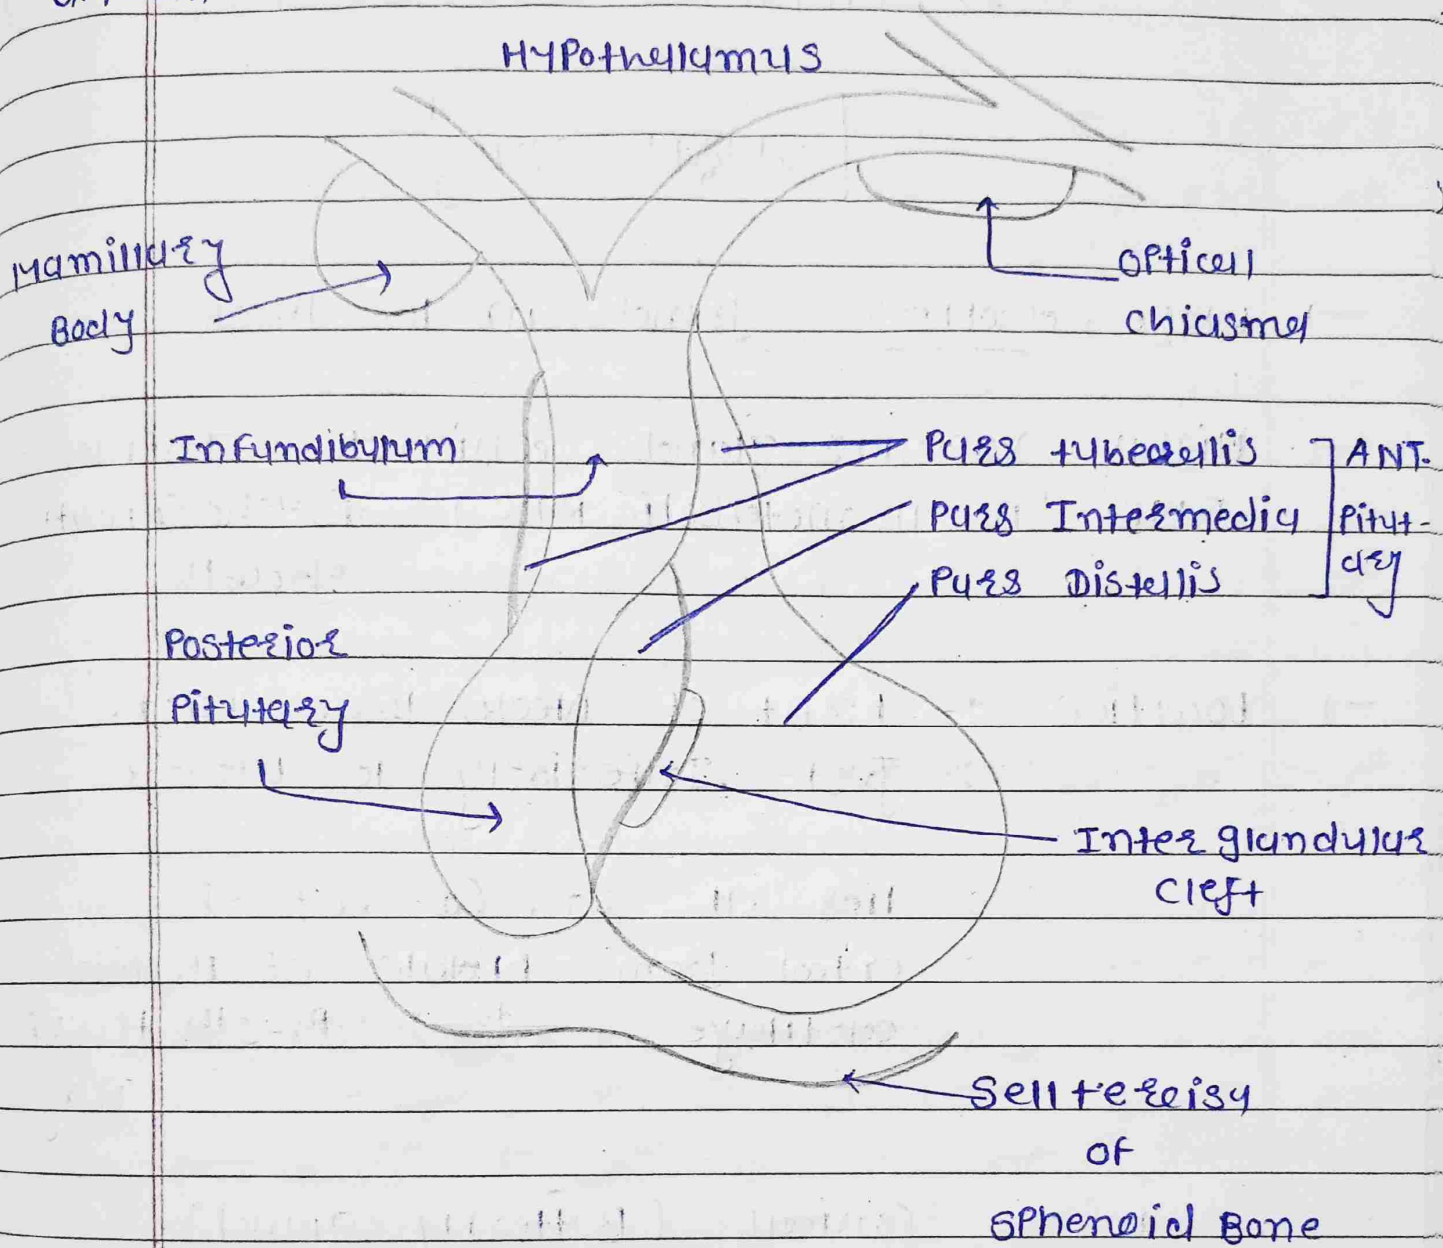 Hypothellamus
Mamillary
Body
Opticall
chiasma
Infundibulum
Pars tuberallis
Pars Intermedia
Pars Distellis
ANT.
Pitut-
ary
Posterior
Pitutary
Inter glandular
cleft
Sell tercisa
of
Sphenoid Bone